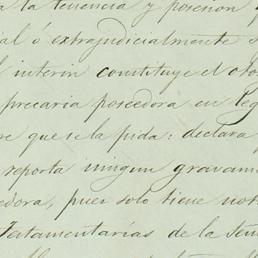 a la tenencia y posesion
al ó extrajudicialmente
l interin constituye el oto
precaria poseedora en leg
re que se la pida: declara
reporta ningun gravam
edora, pues solo tiene not
Testamentarías de la Señ